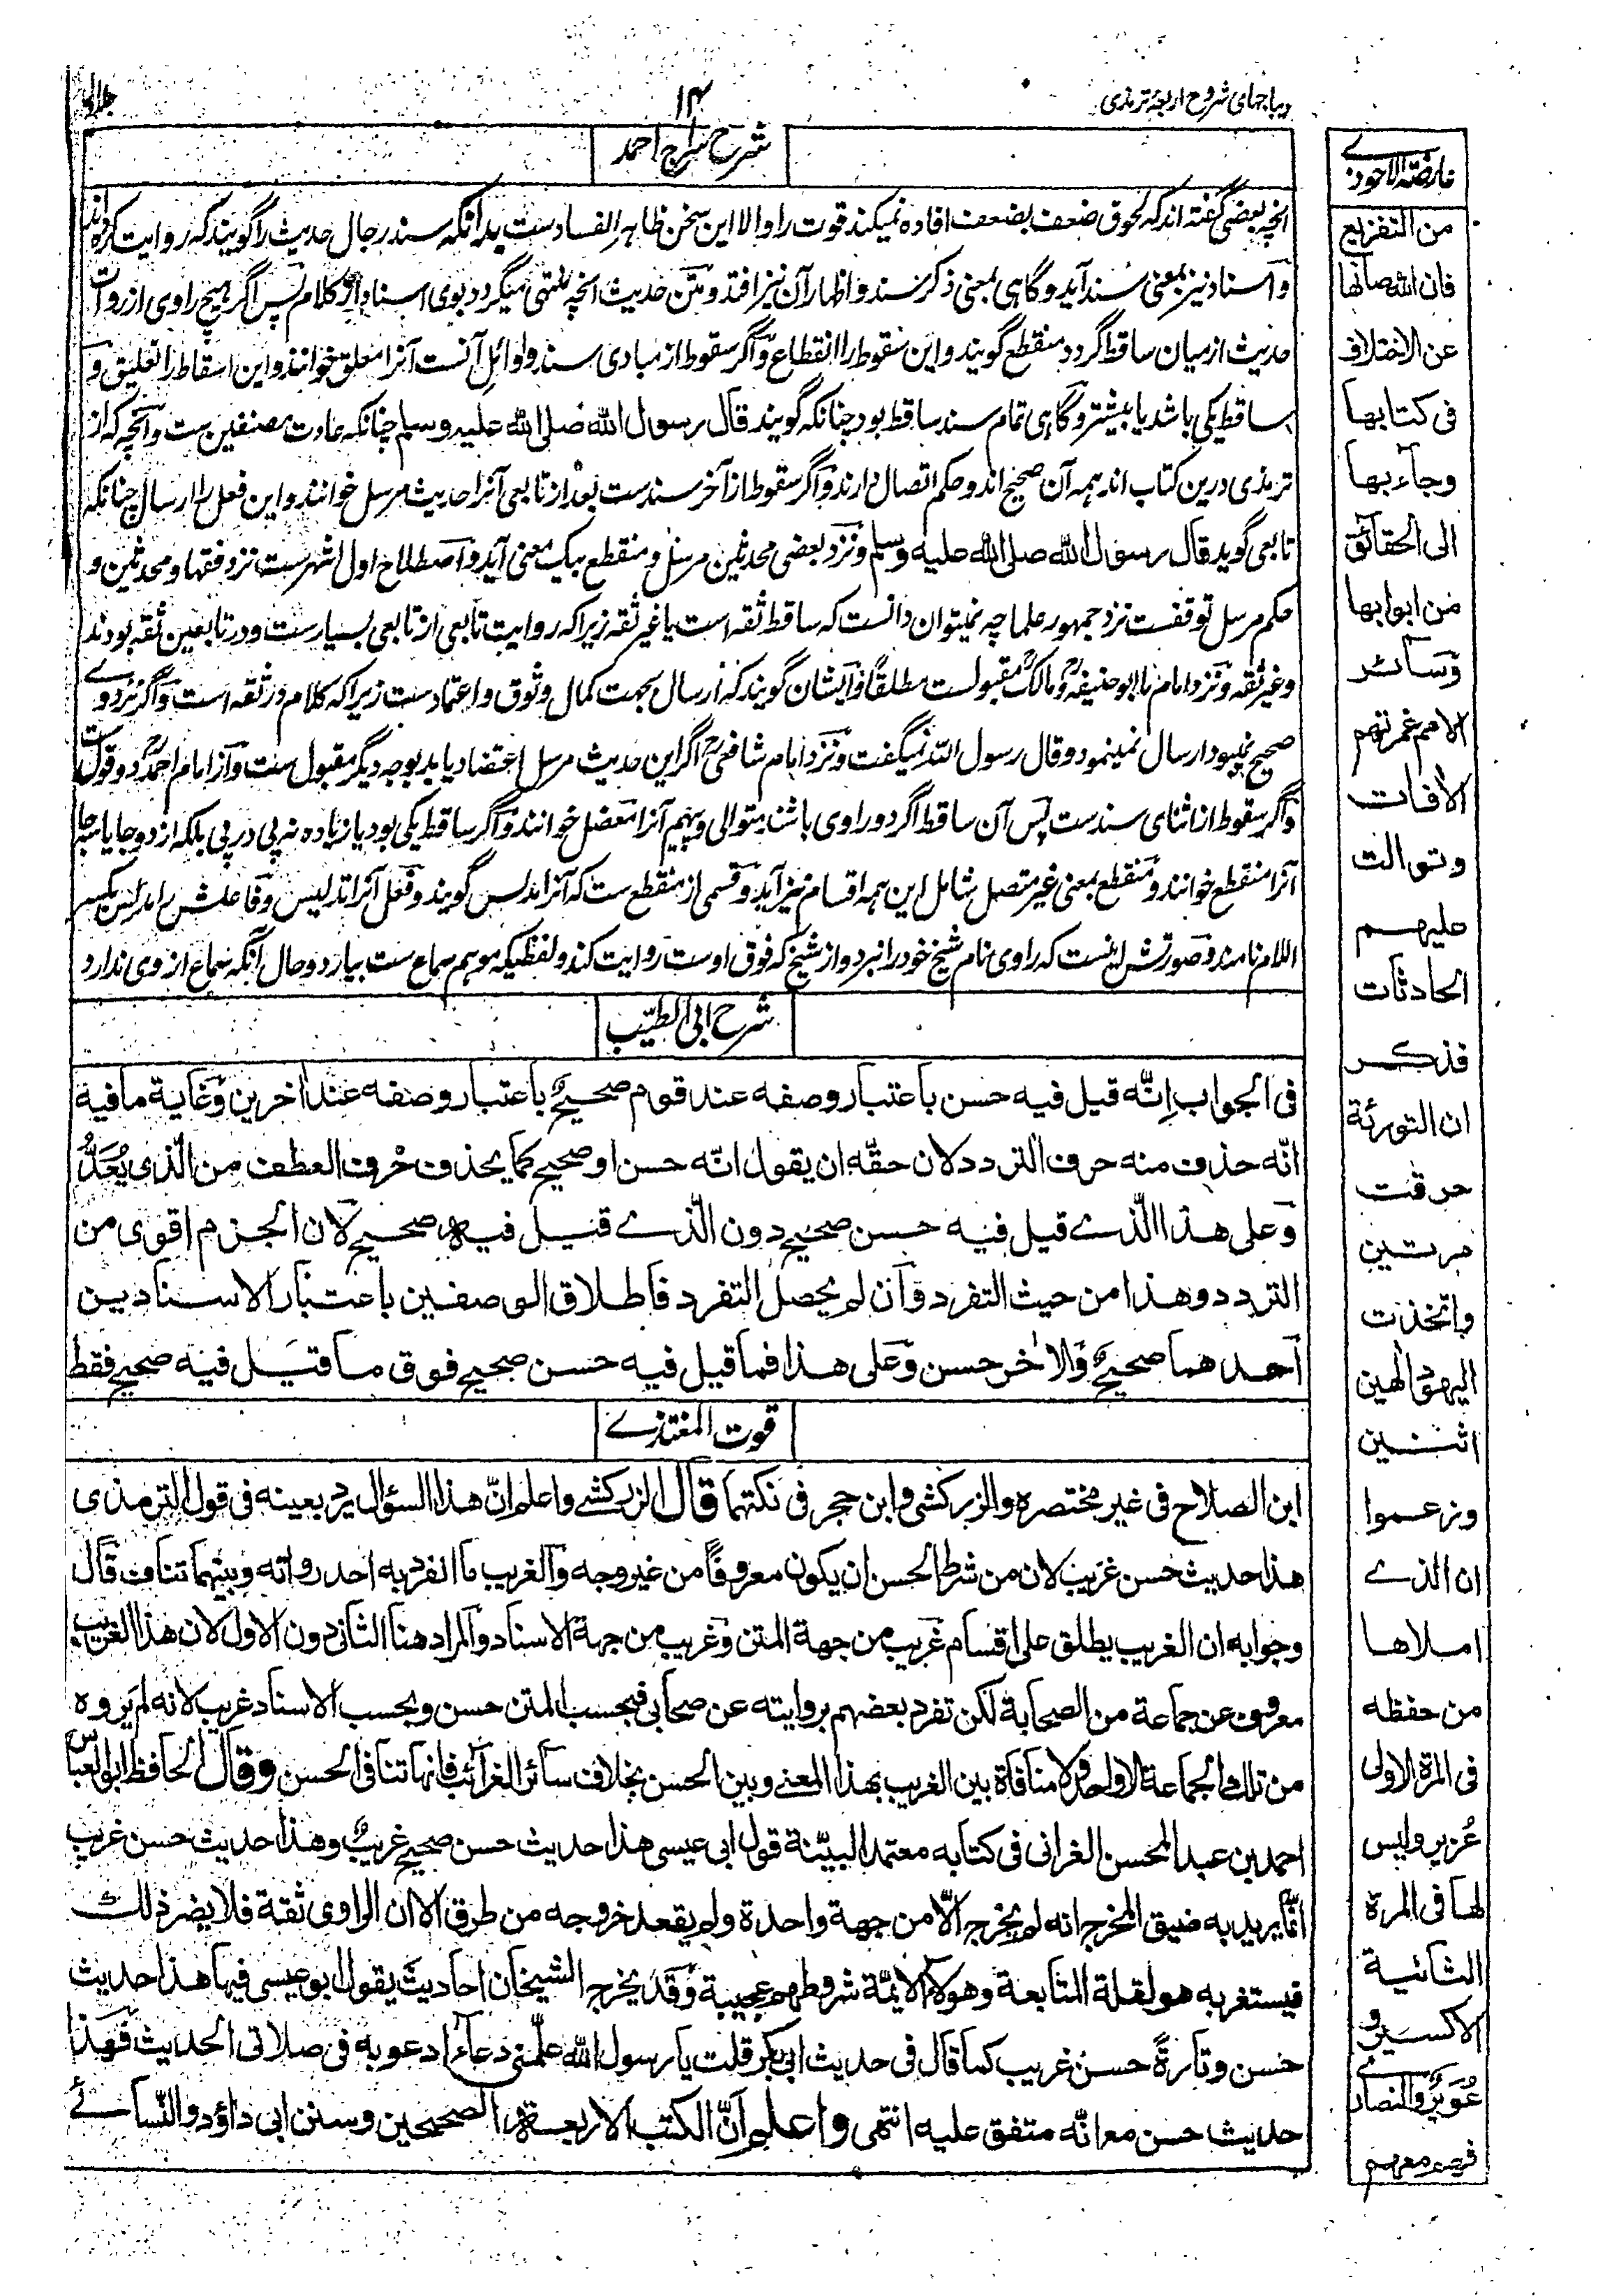 دیباجهای شروح اربعهٔ ترمذی
۱۴
جلد اول
شرح سراج احمد
انچه بعضی گفته اند که لحوق ضعف بضعف افاده نمیکند قوت را والا این سخن ظاهر الفسادست بدانکه سند رجال حدیث را گویند که روایت کرده اند
و اسناد نیز بمعنی سند آید و گاهی بمعنی ذکر سند و اظهار آن نیز افتد و متن حدیث انچه منتهی میگردد بوی اسناد از کلام پس اگر هیچ راوی از روات
حدیث از میان ساقط گردد منقطع گویند و این سقوط را انقطاع و اگر سقوط از مبادی سند و اوائل آنست آنرا معلق خوانند و این اسقاط را تعلیق و
ساقط یکی باشد یا بیشتر و گاهی تمام سند ساقط بود چنانکه گویند قال رسول الله صلی الله علیه وسلم چنانکه عادت مصنفین ست و آنچه که از
ترمذی درین کتاب اند همه آن صحیح اند و حکم اتصال دارند و اگر سقوط از آخر سندست بعد از تابعی آنرا حدیث مرسل خوانند و این فعل را ارسال چنانکه
تابعی گوید قال رسول الله صلی الله علیه وسلم و نزد بعضی محدثین مرسل و منقطع بیک معنی آید و اصطلاح اول اشهرست نزد فقها و محدثین و
حکم مرسل توقفست نزد جمهور علما چه نمیتوان دانست که ساقط ثقه است یا غیر ثقه زیراکه روایت تابعی از تابعی بسیارست و در تابعین ثقه بودند
و غیر ثقه و نزد امام ما ابو حنیفه و مالک مقبولست مطلقاً و ایشان گویند که ارسال بجهت کمال وثوق و اعتمادست زیراکه کلام در ثقه است و اگر نزد وے
صحیح نمیبود ارسال نمینمود و قال رسول الله نمیگفت و نزد امام شافعی اگر این حدیث مرسل اعتضاد یابد بوجه دیگر مقبول ست و از امام احمد دو قول ست
و اگر سقوط از اثنای سندست پس آن ساقط اگر دو راوی باشند متوالی و پیهم آنرا معضل خوانند و اگر ساقط یکی بود یا زیاده نه پی در پی بلکه از دو جا یا سه جا
آنرا منقطع خوانند و منقطع بمعنی غیر متصل شامل این همه اقسام نیز آید و قسمی از منقطع ست که آنرا مدلس گویند و فعل آنرا تدلیس و فاعلش را مدلس بکسر
اللام نامند و صورتش اینست که راوی نام شیخ خود را نبرد و از شیخ که فوق اوست روایت کند و لفظیکه موهم سماع ست بیارد و حال آنکه سماع از وی ندارد
شرح ابی الطیّب
فی الجواب اِنّه قیل فیه حسن باعتبار وصفه عند قوم صحیحٌ باعتبار وصفه عند اٰخرین وغایة ما فیه
انّه حذف منه حرف التردد لان حقّه ان یقول انّه حسن او صحیح کما یحذف حرف العطف من الّذی یُعَدُّ
وعلی هذا الّذے قیل فیه حسن صحیح دون الّذے قیل فیه صحیح لان الجزم اقوی من
التردد وهذا من حیث التفرد وان لم یحصل التفرد فاطلاق الوصفین باعتبار الاسنادین
احدهما صحیحٌ والاٰخر حسن وعلی هذا فما قیل فیه حسن صحیح فوق ما قیل فیه صحیح فقط
قوت المغتذے
ابن الصلاح فی غیر مختصره والزرکشی وابن حجر فی نکتهما قال الزرکشے واعلم انّ هذا السؤال یرد بعینه فی قول الترمذی
هذا حدیث حسن غریب لان من شرط الحسن ان یکون معروفاً من غیر وجه والغریب ما انفرد به احد رواته وبینهما تناف قال
وجوابه ان الغریب یطلق علی اقسام غریب من جهة المتن وغریب من جهة الاسناد والمراد هنا الثانی دون الاول لان هذا الغریب
معروف عن جماعة من الصحابة لکن تفرد بعضهم بروایته عن صحابی فبحسب المتن حسن وبحسب الاسناد غریب لانه لم یروه
من تلک الجماعة الا واحد ولا منافاة بین الغریب بهذا المعنے وبین الحسن بخلاف سائر الغرائب فانها تنافی الحسن وقال الحافظ ابو العباس
احمد بن عبد المحسن الغرافی فی کتابه معتمد البیّنة قول ابی عیسی هذا حدیث حسن صحیح غریبٌ وهذا حدیث حسن غریب
انّما یرید به ضیق المخرج انه لم یخرج الّا من جهة واحدة ولم یتعد خروجه من طرق الا ان الراوی ثقة فلا یضر ذلک
فیستغربه هو لقلة المتابعة وهولاء الائمّة شروطهم عجیبة وقد یخرج الشیخان احادیث یقول ابو عیسی فیها هذا حدیث
حسن وتارةً حسن غریب کما قال فی حدیث ابی بکر قلت یا رسول الله علّمنی دعاءً ادعو به فی صلاتی الحدیث فهذا
حدیث حسن مع انّه متفق علیه انتهی واعلم انّ الکتب الاربعة الصحیحین وسنن ابی داؤد والنّسائے
عارضة الاحوذے
من التفزیع
فان الله صانها
عن الاختلاف
فی کتابها
وجاء بها
الی الحقائق
من ابوابها
وسائر
الامم غمرتهم
الاٰفات
وتوالت
علیهم
الحادثات
فذکر
ان التورٰیة
حرقت
مرتین
واتخذت
الیهود الٰهین
اثنین
وزعموا
ان الذے
املاها
من حفظه
فی المرة الاولی
عُزیر ولیس
لها فی المرة
الثانیة
الاکسیر و
عُویر والنصارے
فرضے معهم